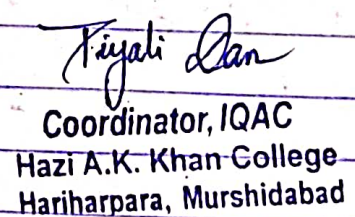 Piyali Dan
Coordinator, IQAC
Hazi A.K. Khan College
Hariharpara, Murshidabad